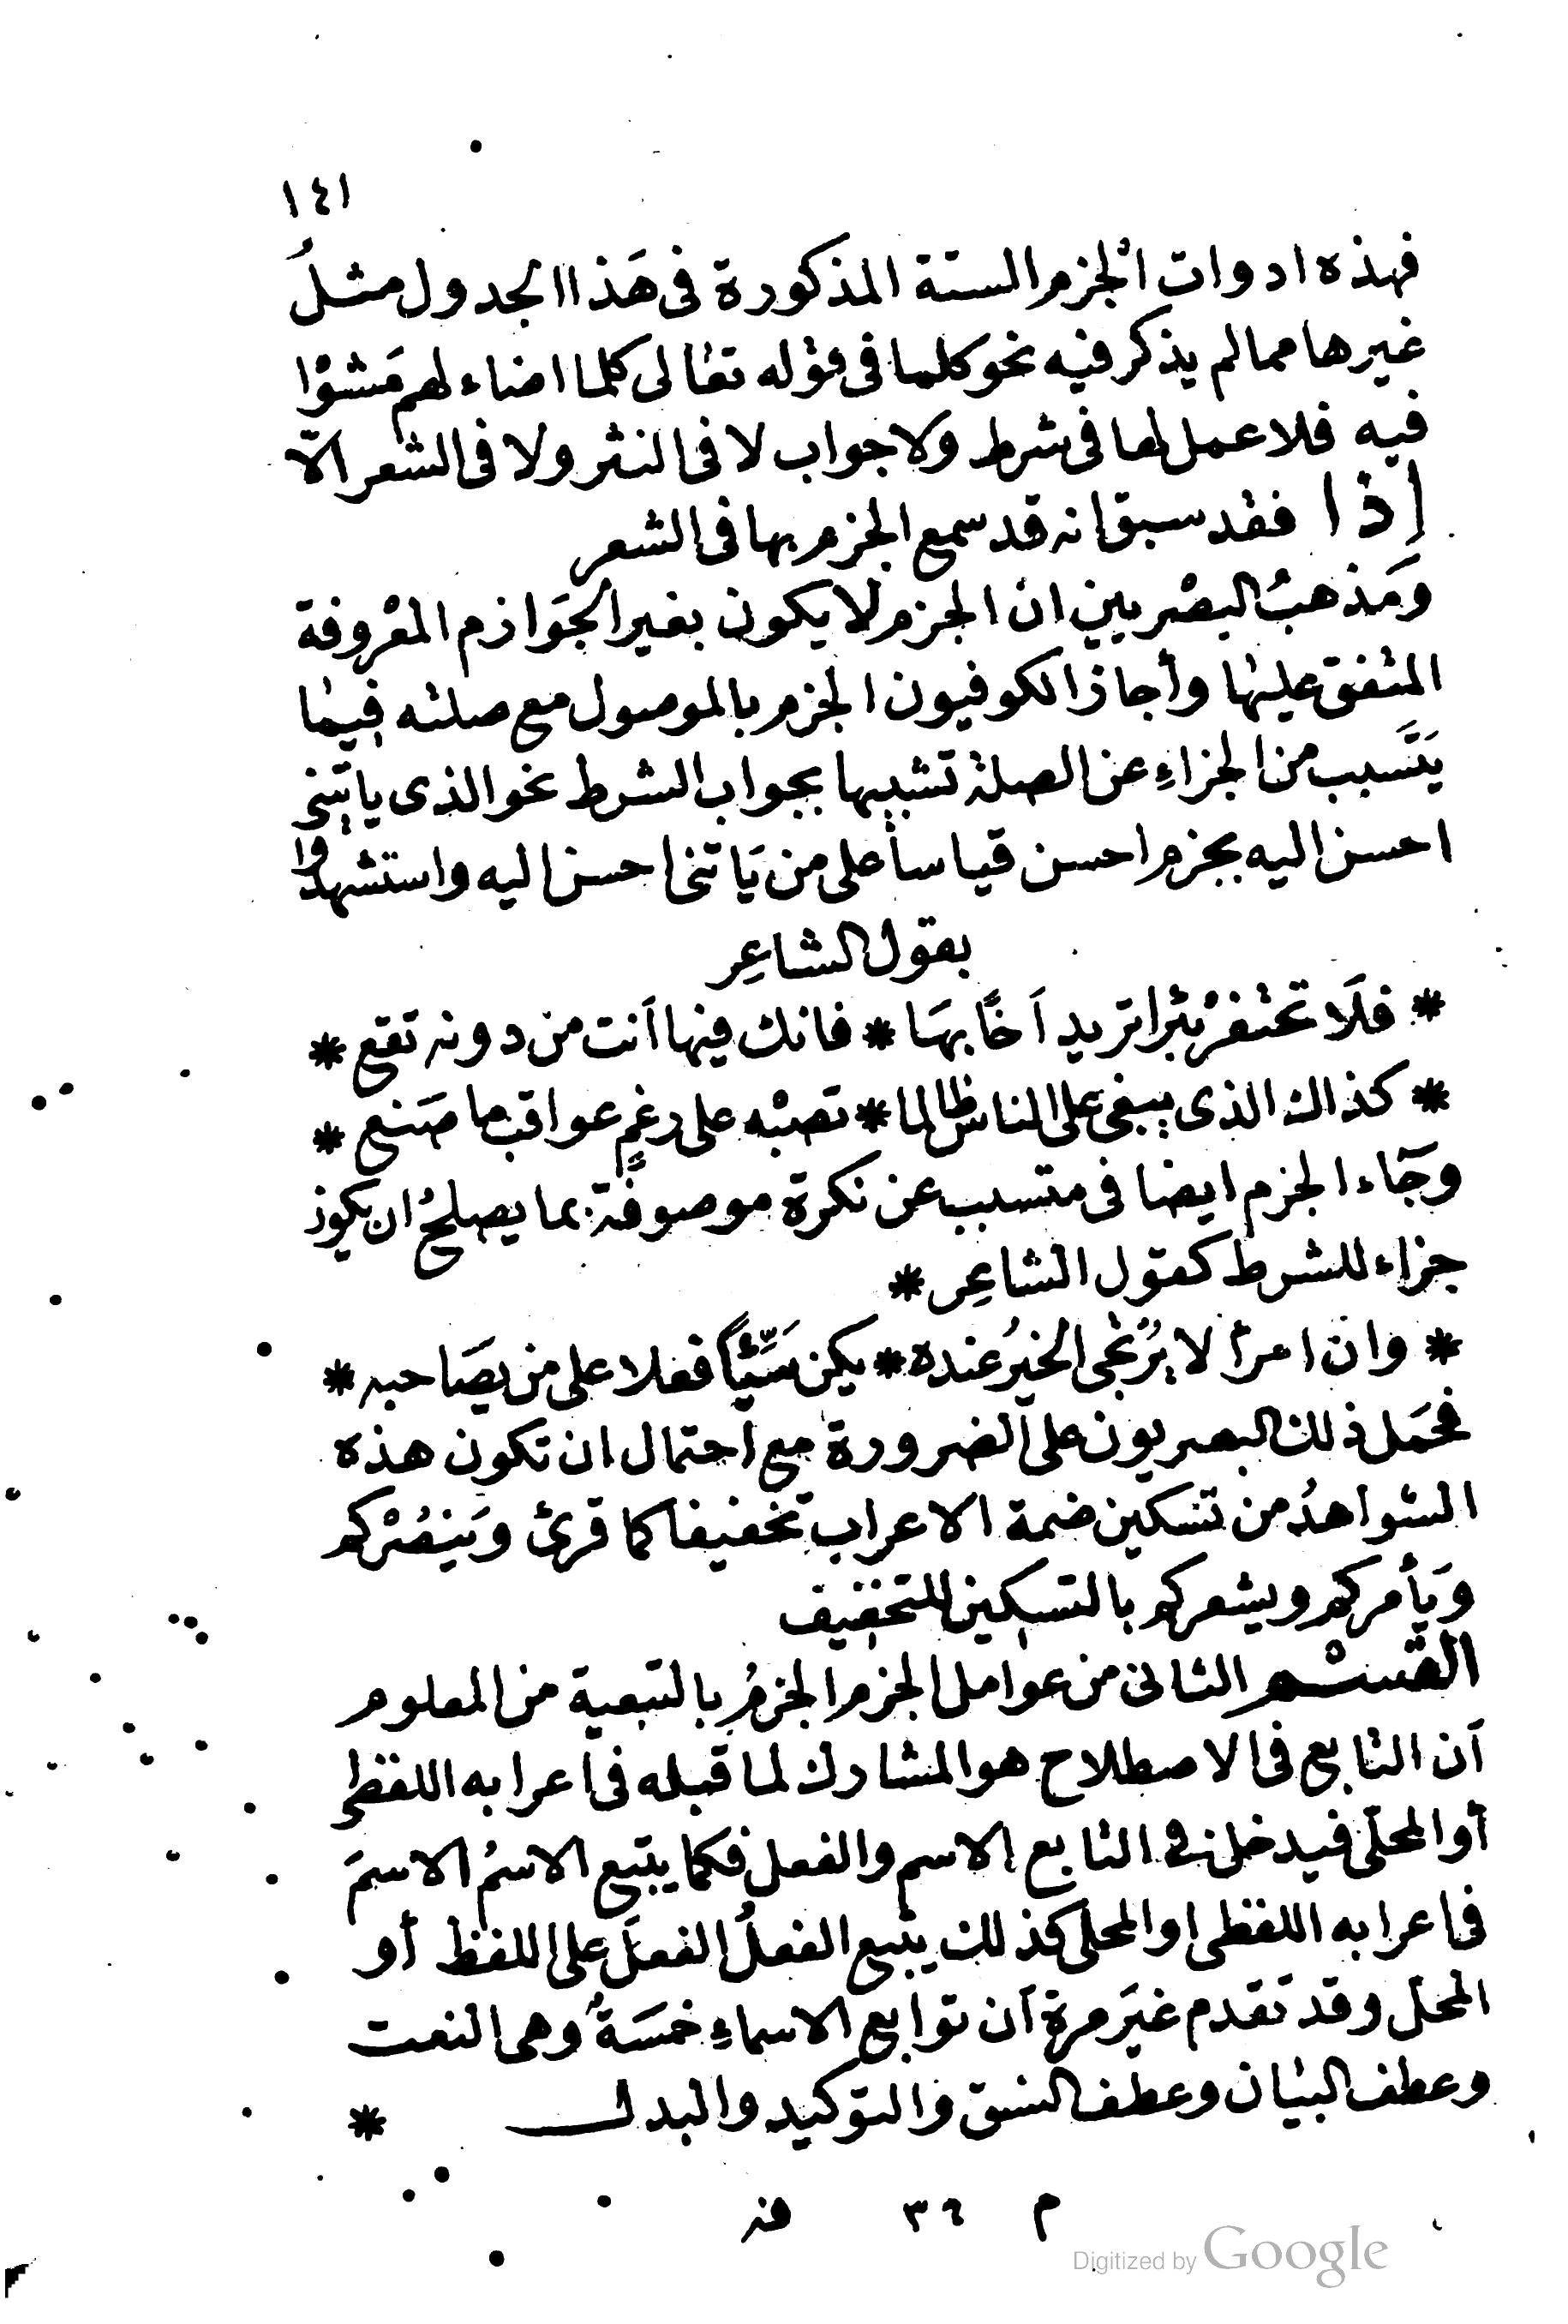 ١٤١
فهذه ادوات الجزم الستة المذكورة فى هَذا الجدول مثلُ
غيرها مما لم يذكر فيه نحو كلما فى قوْله تعالى كلما اضاء لهم مَشوْا
فيه فلا عمل لها فى شرط ولا جواب لا فى النثر ولا فى الشعر الّا
إذا فقد سبق انه قد سمع الجزم بها فى الشعر
وَمَذهبُ البصْريين ان الجزم لا يكون بغير الجَوازم المعْروفة
المتفق عليها وأجاز الكوفيون الجزم بالموصول مع صلته فيما
يَتَسبب من الجزاءِ عن الصلة تشبيها بجواب الشرط نحو الذى ياتينى
احسن اليه بجزم احسن قياسا على من يَاتنى احسن اليه واستشهدوا
بقول الشاعِر
* فلَا تحْفرْ بئرا تريد اَخًا بهَا * فانك فيها اَنت من دونه تقع *
* كذاك الذى يبغى على الناس ظالما * تصبْه على رغمٍ عواقب ما صَنع *
وجَاء الجزم ايضا فى متسبب عن نكرة موصوفة بما يصلحُ ان يكون
جزاء للشرط كقول الشاعِر *
* وان امرأ لا يُرْتجى الخيرُ عنده * يكن سَيّئًا فعلا على من يصَاحبه *
فحَمَل ذلك البصريون على الضرورة مع احتمال ان تكون هذه
الشواهدُ من تسكين ضمة الاعراب تخفيفا كما قرئ وَينصُرْكم
وَيَأمركم ويشعركم بالتسكين للتخفيف
القسْم الثانى من عوامل الجزم الجزمُ بالتبعية من المعلوم
اَن التابع فى الاصطلاح هو المشارك لما قبله فى اعرابه اللفظى
أو المحلّى فيدخل فى التابع الاسم والفعل فكما يتبع الاسمُ الاسمَ
فى اعرابه اللفظى او المحلّى كذلك يتبع الفعلُ الفعلَ على اللفظ أو
المحلّ وقد تقدم غيَر مرة اَن توابع الاسماءِ خمسَةٌ وهى النعت
وعطف البيَان وعطف النسق والتوكيد والبدل *
م ٣٦ فنـ
Digitized by Google